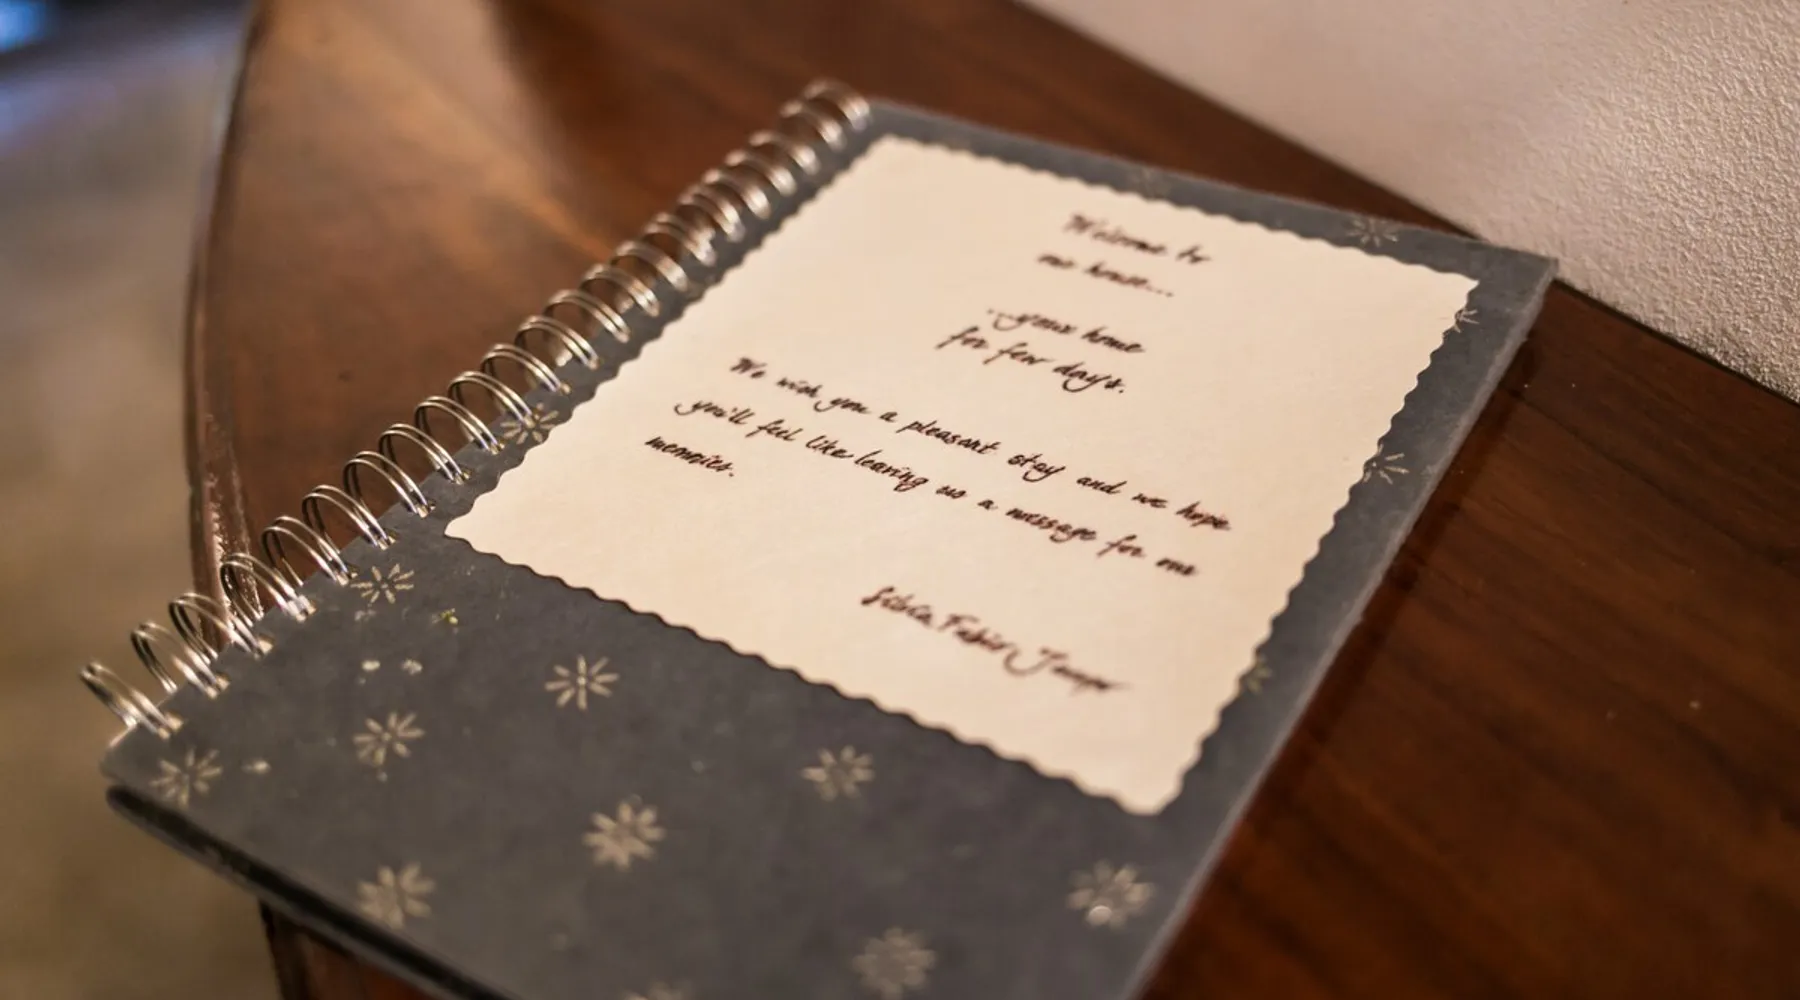 Welcome to
our house...
...your home
for few days.
We wish you a pleasant stay and we hope
you'll feel like leaving us a message for our
memories.
Silvia, Fabio